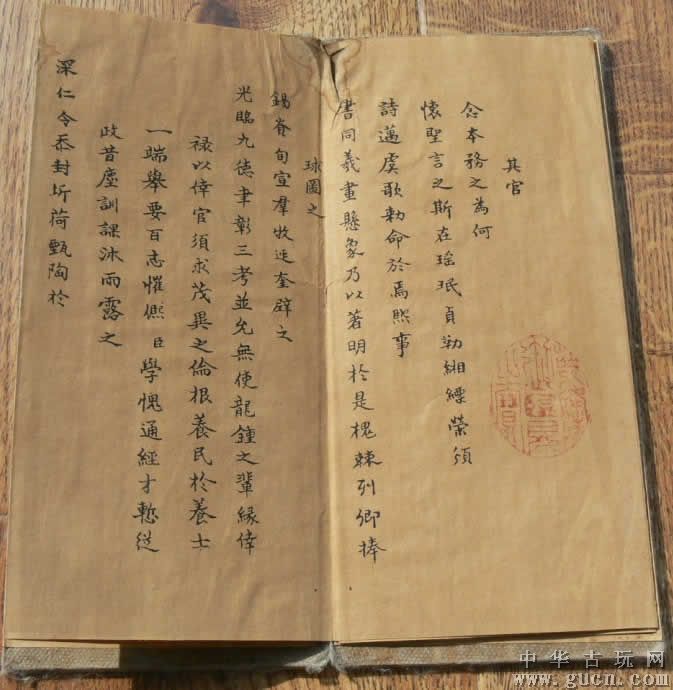 其官
念本務之為何
懷聖言之斯在瑤珉貞勒緗縹榮頒
詩邁虞歌勑命於焉熙事
書同羲畫懸象乃以著明於是槐棘列卿捧
球圖之
錫旬宣羣牧迓奎璧之
光臨九德聿彰三考並允無使龍鍾之輩緣倖
祿以倖官須求茂異之倫根養民於養士
一端舉要百志熙臣學愧通經才慙從
政昔塵訓課沐雨露之
深仁今忝封圻荷甄陶於
中华古玩网
www.gucn.com